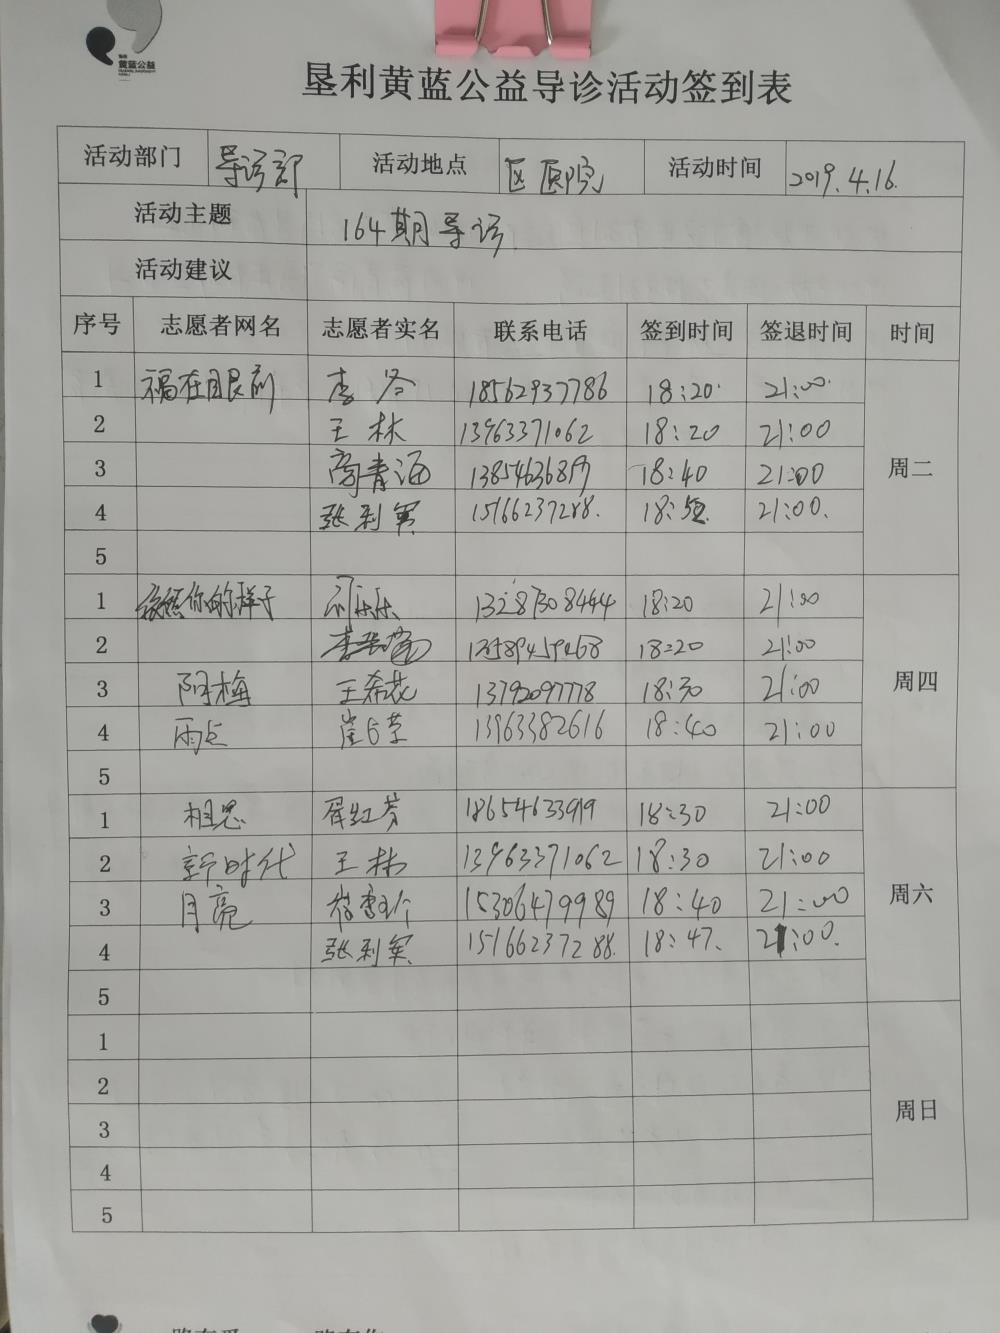 黄蓝公益
垦利黄蓝公益导诊活动签到表
活动部门 导诊部 活动地点 区医院 活动时间 2019.4.16.
活动主题 164期导诊
活动建议
序号 志愿者网名 志愿者实名 联系电话 签到时间 签退时间 时间
1 福在眼前 李冬 18562937786 18:20 21:00
2 王林 13963371062 18:20 21:00
3 高青海 18:40 21:00
4 张利军 15166237288. 18:52 21:00.
5
周二
1 你的样子 13287308444 18:20 21:00
2 13589459468 18:20 21:00
3 阿梅 王希花 13792097778 18:30 21:00
4 雨点 13963382616 18:40 21:00
5
周四
1 相思 18654633919 18:30 21:00
2 新时代 王林 13963371062 18:30 21:00
3 月亮 15306479989 18:40 21:00
4 张利军 15166237288. 18:47. 21:00.
5
周六
1
2
3
4
5
周日